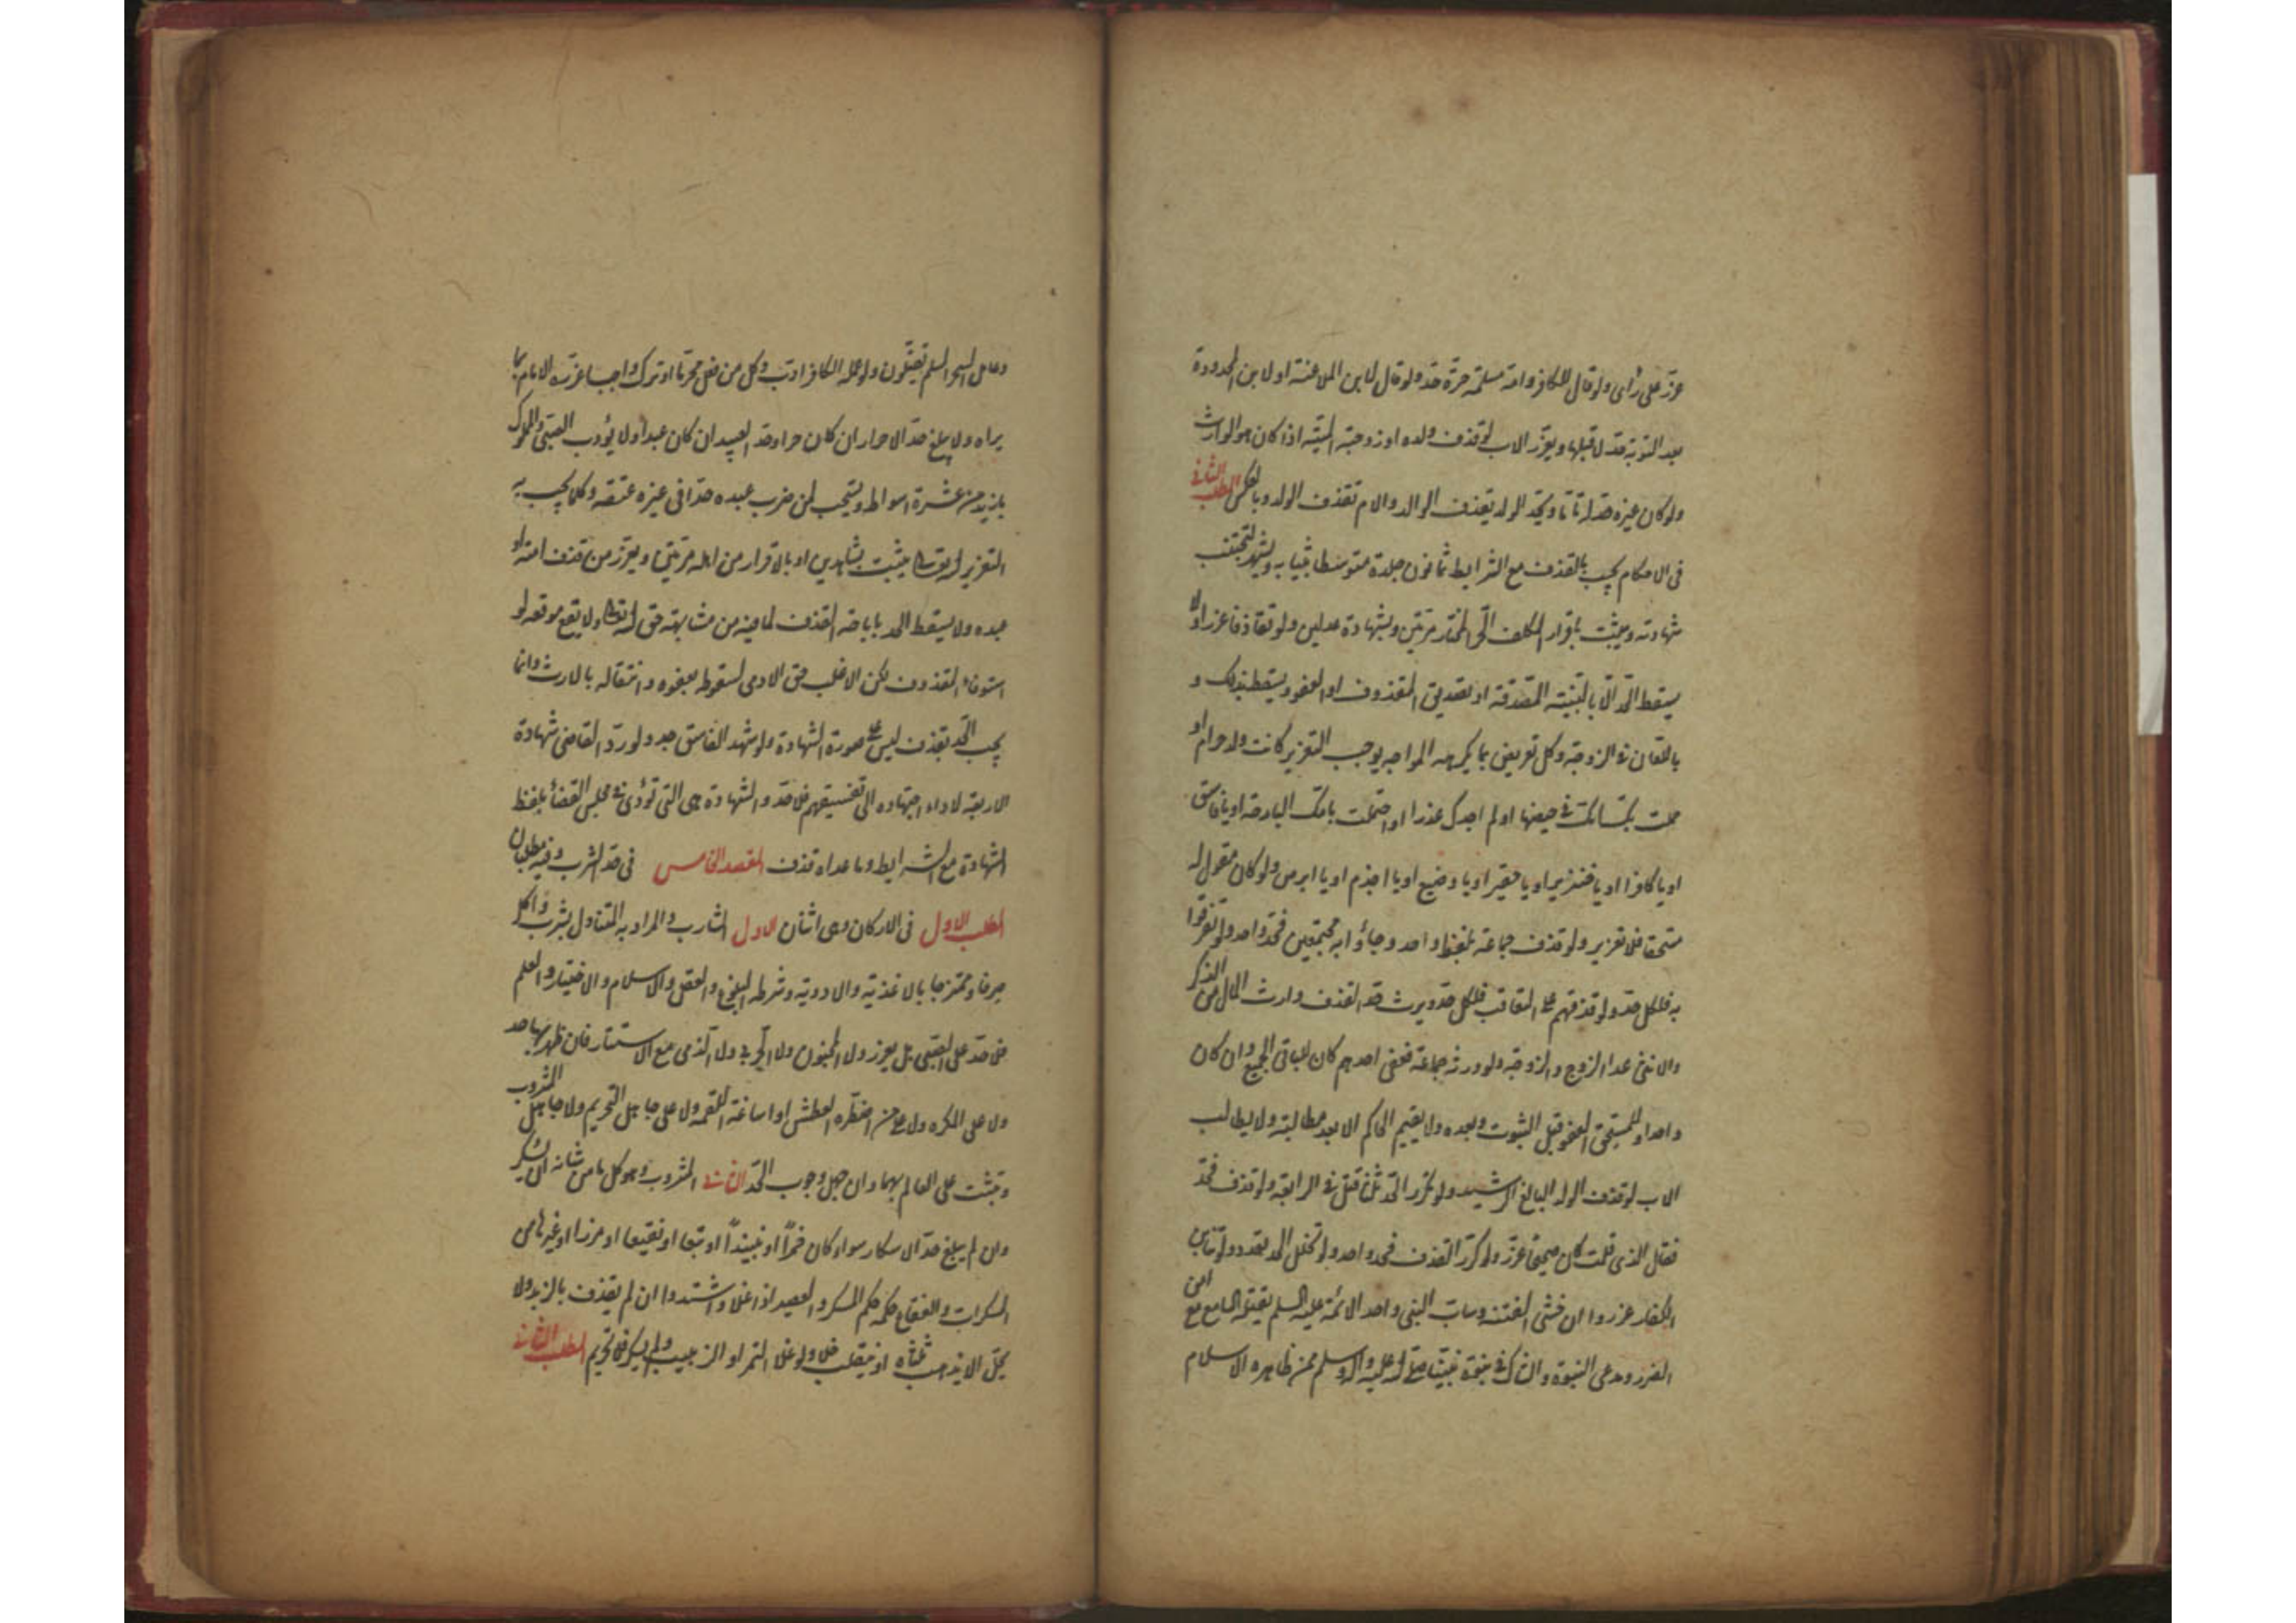 عزر على رأى ولو قال للكافر وامه مسلمة حرة حد ولو قال لابن الملاعنة او لابن المحدودة
بعد التوبة حد لا قبلها ويعزر الاب لو قذف ولده او زوجته الميتة اذا كان هو الوارث
ولو كان غيره حد له تاما ويحد الولد بقذف الوالد والام تقذف الولد وبالعكس المطلب الثانى
فى الاحكام يجب بالقذف مع الشرايط ثمانون جلدة متوسطا بثيابه ويشهر لتجتنب
شهادته ويثبت باقرار المكلف الحر المختار مرتين وبشهادة عدلين ولو تقاذفا عزرا ولا
يسقط الحد الا بالبينة المصدقة او تصديق المقذوف او العفو ويسقط بذلك و
باللعان فى الزوجة وكل تعريض بما يكرهه المواجه يوجب التعزير كانت ولد حرام او
حملت بك امك فى حيضها او لم اجدك عذرا او احتملت بامك البارحة او يا فاسق
او يا كافر او يا خنزير او يا حقير او يا وضيع او يا اجذم او يا ابرص ولو كان مقول له
مستحقا فلا تعزير ولو قذف جماعة بلفظ واحد وجاؤا به مجتمعين فحد واحد ولو تفرقوا
به فلكل حد ولو قذفهم على التعاقب فلكل حد ويرث حد القذف وارث المال من الذكر
والانثى عدا الزوج والزوجة ولو ورثه جماعة فعفى احدهم كان للباقى الجميع وان كان
واحدا وللمستحق العفو قبل الثبوت وبعده ولا يقيم الحاكم الا بعد مطالبته ولا يطالب
الاب لو قذف الولد البالغ الرشيد ولو تكرر الحد ثلثا قتل فى الرابعة ولو قذف فحد
فقال الذى قلت كان صحيحا عزر ولو كرر القذف فحد واحد ولو تخلل الحد تعدد ولو تنابز
الكفار عزروا ان خشى الفتنة وساب النبى واحد الائمة عليهم السلم يقتله السامع مع امن
الضرر ومدعى النبوة والشاك فى نبوة نبينا صلى الله عليه واله وسلم ممن ظاهره الاسلام
وعامل السحر المسلم يقتلون ولو عمله الكافر ادب وكل من فعل محرما او ترك واجبا عزره الامام بما
يراه ولا يبلغ حد الاحرار ان كان حرا وحد العبيد ان كان عبدا ولا يؤدب الصبى والمملوك
بازيد من عشرة اسواط ويستحب لمن ضرب عبده حدا فى غيره عتقه وكل ما يجب به
التعزير لله تعالى يثبت بشاهدين او بالاقرار من اهله مرتين ويعزر من قذف امته او
عبده ولا يسقط الحد باباحة القذف لما فيه من مشابهة حق الله تعالى ولا يقع موقعه لو
استوفاه المقذوف لكن الاغلب حق الادمى لسقوطه بعفوه وانتقاله بالارث وانما
يجب الحد بقذف ليس على صورة الشهادة ولو شهد الفاسق حد ولو رد القاضى شهادة
الاربعة لاداء اجتهاده الى تفسيقهم فلا حد والشهادة هى التى تؤدى فى مجلس القضاء بلفظ
الشهادة مع الشرايط وما عداه قذف المقصد الخامس فى حد الشرب وفيه مطلبان
المطلب الاول فى الاركان وهى اثنان الاول الشارب والمراد به المتناول بشرب واكل
صرفا وممتزجا بالاغذية والادوية وشرطه البلوغ والعقل والاسلام والاختيار والعلم
فلا حد على الصبى بل يعزر ولا المجنون ولا الحربى ولا الذمى مع الاستتار فان ظهر بها حد
ولا على المكره ولا على من اضطره العطش او اساغة اللقمة ولا على جاهل التحريم ولا جاهل المشروب
ويثبت على العالم بهما وان جهل وجوب الحد الثانى المشروب وهو كل ما من شانه ان يسكر
وان لم يبلغ حد الاسكار سواء كان خمرا او نبيذا او بتعا او نقيعا او مزرا او غيرها من
المسكرات والفقاع حكمه حكم المسكر والعصير اذا غلا واشتد وان لم يقذف بالزبد ولا
يحل الا ان يذهب ثلثاه او ينقلب خلا ولو غلا التمر او الزبيب ولم يسكر فلا تحريم المطلب الثانى